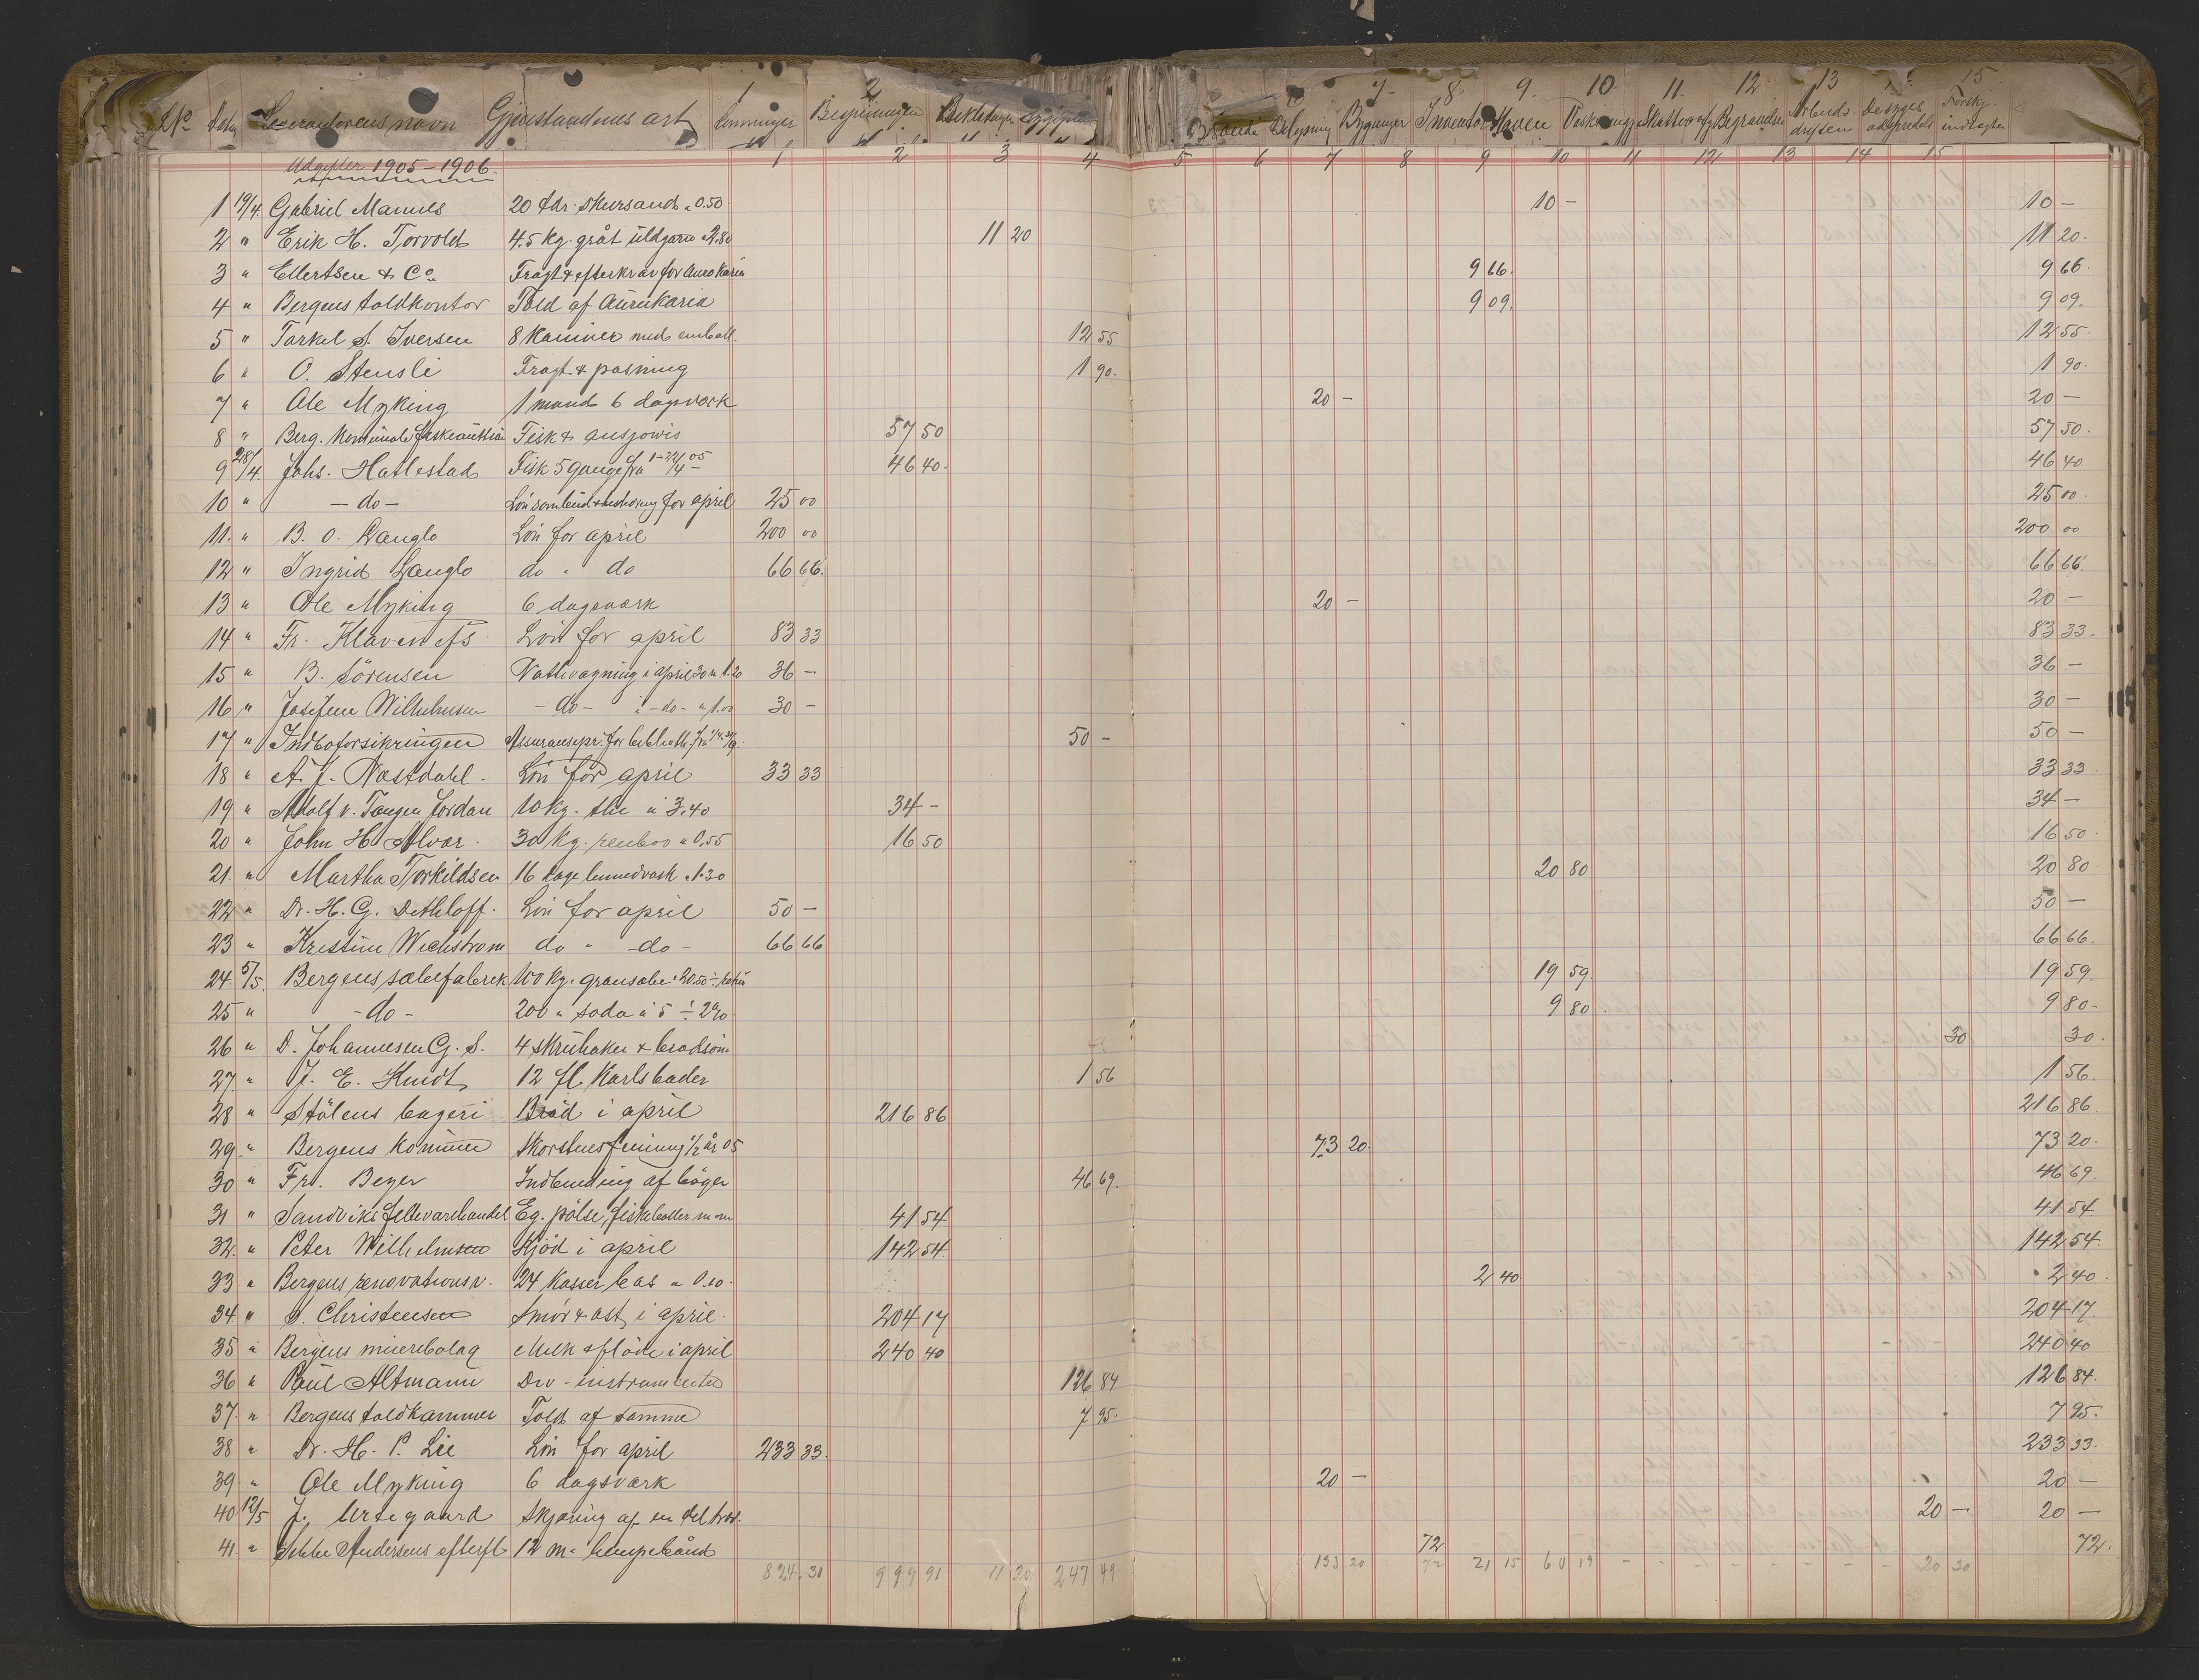 1 2 7 8. 9. 10. 11. 12 13 15
No Leverandørens navn Gjenstandens art Lønninger Bespisningen Beklædningen Brænde Belysning Bygninger Inventar Haven Begravelser
1 2 3 4 5 6 7 8 9 10 11 12 13 14 15
Udgifter 1905–1906.
1 19/4. Gabriel Mannes 20 tdr. skursand " 0.50 10 – 10 –
2 " Erik H. Torvold 4.5 kg. gråt uldgarn " 2.80 11 20 11 20.
3 " Ellertsen & Co. Fragt & efterkrav for Aurokaria 9 66. 9 66.
4 " Bergens toldkontor Told af Aurukaria 9 09. 9 09.
5 " Torkel S. Iversen 8 Kaniner med emball. 12 55 12 55.
6 " O. Stensli Fragt & pasning 1 90. 1 90.
7 " Ole Myking 1 mand 6 dagsværk 20 – 20 –
8 " Berg. Komunale fiskeauktion Fisk & ansjovis 57 50 57 50.
9 28/4. Johs. Hatlestad Fisk 5 gange fra 46 40. 46 40
10 " – do – for april 25 00 25 00.
11. " B. O. Langlo Lön for april 200 00 200 00
12 " Ingrid Langlo do " do 66 66. 66 66
13 " Ole Myking 6 dagsværk 20 – 20 –
14 " Fr. Klaveness Lön for april 83 33 83 33.
15 " B. Sörensen Nattevagning i april 30 " 1.20 36 – 36 –
16 " Josefine Wilhelmsen – do – i – do – " 1.00 30 – 30 –
17 " Indboforsikringen Assurancepr. for biblioth. fra 50 – 50 –
18 " A. J. Næstdahl. Lön for april 33 33 33 33.
19 " Adolf v. Tangen Jordan 10 kg. the à 3.40 34 – 34 –
20 " John H. Alvær. 30 kg. " 0,55 16 50 16 50.
21. " Martha Torkildsen 16 dage " 1.30 20 80 20 80.
22 " Dr. H. G. Dethloff. Lön for april 50 – 50 –
23 " Kristine Wickstrøm do " – do – 66 66 66 66.
24. 5/5. Bergens sæbefabrik 100 kg. grønsæbe " 20.50 19 59. 19 59.
25 " – do – 200 " soda à 5 ÷ 2% 9 80. 9 80 –
26 " D. Johannesen G. S. 4 skruhaker & brodsöm 30 30.
27. " J. E. 12 fl. Karlsbader 1 56 1 56.
28 " Stölens bageri Bröd i april 216 86 216 86.
29. " Bergens kommune Skorstensfeining 1/2 år 05 73 20. 73 20.
30 " Fr. Beyer Indbinding af böger 46 69. 46 69.
31 " Sandviks fettevarehandel Eg. pölse, fiskeboller m m 41 54 41 54
32. " Peter Wilhelmsen Kjöd i april 142 54. 142 54.
33 " Bergens renovationsv. 24 kasser bas " 0.10. 2 40 2 40.
34 " S. Christensen Smör & ost i april. 204 17 204 17.
35 " Bergens meieribolag Melk & flöde i april 240 40 240 40
36 " Paul Altmann Div – instrumenter 126 84 126 84.
37. " Bergens toldkammer Told af samme 7 95. 7 95.
38 " Dr. H. P. Lie Lön for april 233 33. 233 33.
39. " Ole Myking 6 dagsværk 20 – 20 –
40 12/5 J. Urtegaard Skjæring af en del 20 – 20 –
41. " Andersens efterfl. 12 m. 72 72.
824.31 999 91 11 20 247 49 133 20 72 21 15 60 19 – – – – – 20 30